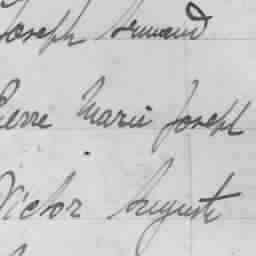 Joseph Armand
Pierre Marie Joseph
Victor Auguste